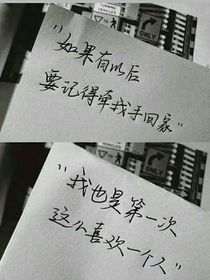 TURNING
VEHICLES
ONLY
"如果有以后
要记得牵我手回家"
ONLY
"我也是第一次
这么喜欢一个人"